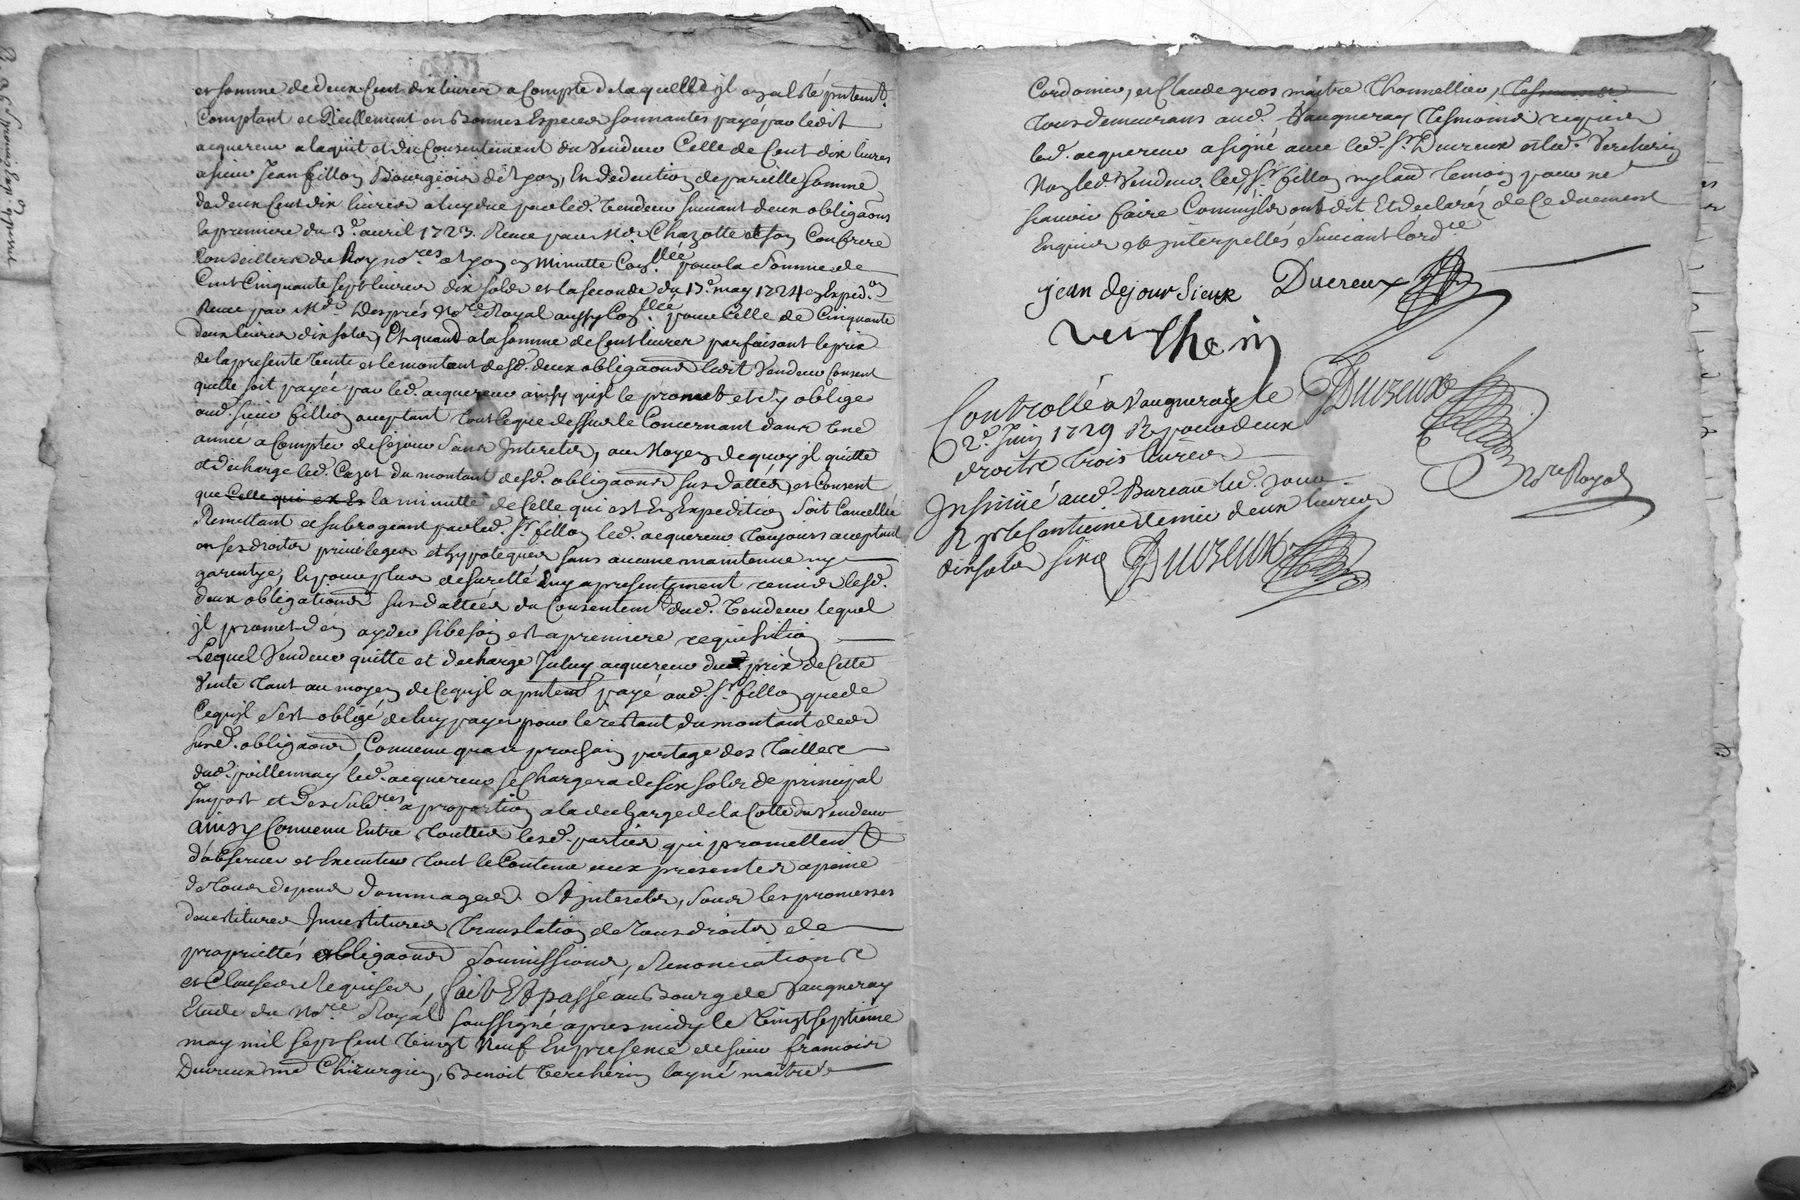 et somme de deux Cent dix livres a Compte de laquelle jl a realité pntemt.
Comptant et Reellement en Bonnes Especes sonnantes payé par ledit
acquereur a laquit et du Consentement du Vendeur Celle de Cent dix livres
a sieur Jean fillon Bourgeois de Lyon, En deduction de pareille somme
de deux Cent dix livres a luy due par led. Vendeur suivant deux obligaons
la premiere du 3e. avril 1723. Receue par Me. Chazotte et son Confrere
Conseillers du Roy nores. a Lyon en Minutte Con.llée pour la Somme de
Cent Cinquante sept livres dix sols et la seconde du 17e. may 1724 en Exped.on
Receue par Me. Després Nore. Royal aussy Con.llée pour Celle de Cinquante
deux livres dix sols, Et quand a la somme de Cent livres parfaisant le prix
de la presente Vente et le montant desd. deux obligaons ledit Vendeur Consent
quelle soit payée par led. acquereur ainsy qu'jl le promet et s'y oblige
aud. sieur fillion acceptant Tout Ce que dessus le Concernant dans Une
année a Compter de Ce jour Sans Interets, au Moyen de quoy jl quitte
et decharge led. Cazot du montant desd. obligaons susdattées, et Consent
que Celle qui ex En la minutte de Celle qui est En Expedition Soit Cancellée
Remettant et subrogeant par led. Sr. fillon led. acquereur Toujours acceptant
en ses droits privileges et hypoteques sans aucune maintenue ny
garentye, les pour plus de sureté Luy a presentement remis lesd.
deux obligations susdattées du Consentemt. dud. Vendeur lequel
jl promet d'en ayder si besoin est a premiere requisition
Lequel Vendeur quitte et decharge Jceluy acquereur dud. prix de Cette
Vente tant au moyen de Ce qu'jl a pntemt. payé aud. Sr. fillon que de
Ce qu'jl s'est obligé de luy payer pour le restant du montant desd.
susd. obligaons, Convenu qu'au prochain partage des Tailles
dud. pollionnay led. acquereur se Chargera de six sols de principal
Impost et des Subres. a proportion a la decharge de la Cotte du Vendeur
ainsy Convenu Entre Touttes lesd. parties qui promettent
d'observer et Executer Tout le Contenu aux presentes a peine
de Tous depens dommages et jnterets, sous les promesses
devestitures Jnvestitures Translation de Tous droits de
proprietés obligaons Soumissions, Renonciations
et Clauses Requises, fait Et passé au Bourg de Vaugneray
Etude du Nore. Royal soussigné apres midy le Vingt septieme
may mil sept Cent Vingt Neuf En presence de sieur francois
Ducreux me Chirurgien, Benoit Vercherin layné maitre
Cordonier, et Claude gros maitre Thonnellier,
Tous demeurans aud. Vaugneray Tesmoins requis
led. acquereur a signé avec led. Sr. Ducreux et led. Vercherin
Non led. Vendeur, led. Sr. fillon ny laud. temoin pour ne
scavoir faire Comme jls ont dit Et declaréz de Ce duement
Enquis et jnterpellés Suivant lord.ce
jean dejour Sieux Ducreux
vercherin
Controllé a Vaugneray le
2e. Juin 1729 R pour deux
droits trois livres
Ducreux
Nore Royal
Jnsinüé aud. Bureau led. jour
R pr le Centieme denier deux livres
dix sols signé Ducreux